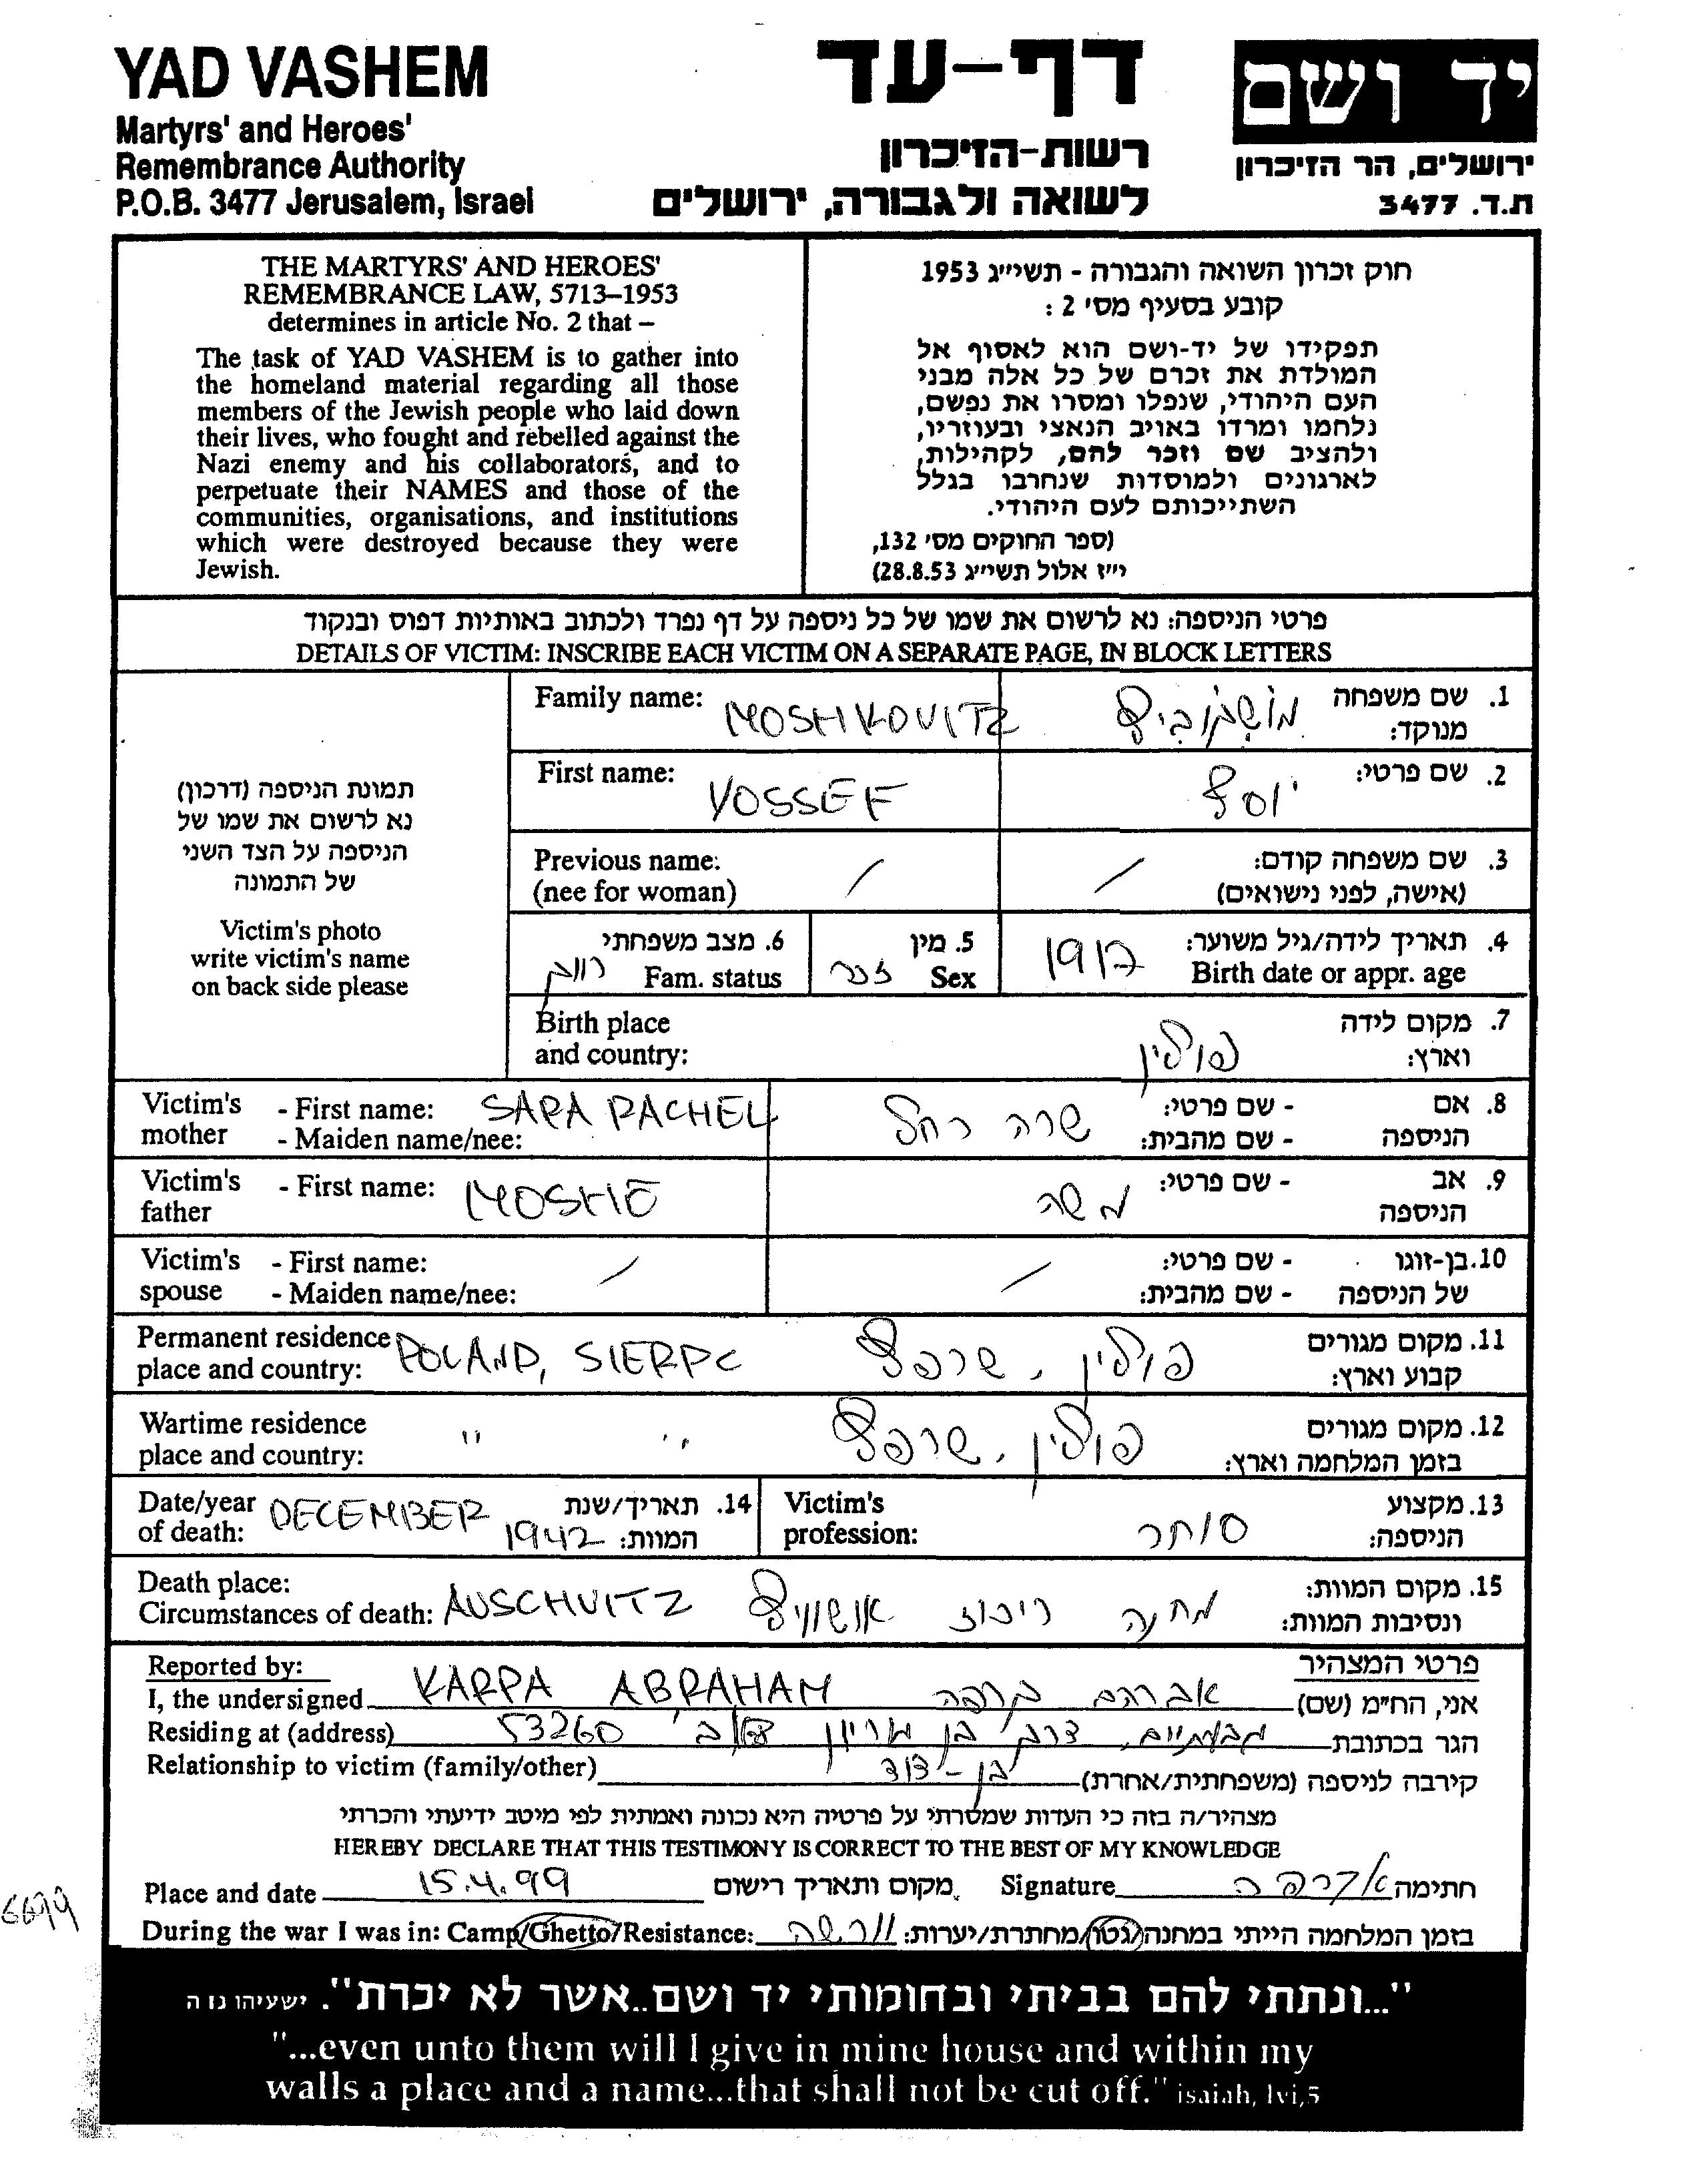 YAD VASHEM
Martyrs' and Heroes'
Remembrance Authority
P.O.B. 3477 Jerusalem, Israel
דף-עד
רשות-הזיכרון
לשואה ולגבורה, ירושלים
יד ושם
ירושלים, הר הזיכרון
ת.ד. 3477
THE MARTYRS' AND HEROES'
REMEMBRANCE LAW, 5713–1953
determines in article No. 2 that –
The task of YAD VASHEM is to gather into
the homeland material regarding all those
members of the Jewish people who laid down
their lives, who fought and rebelled against the
Nazi enemy and his collaborators, and to
perpetuate their NAMES and those of the
communities, organisations, and institutions
which were destroyed because they were
Jewish.
חוק זכרון השואה והגבורה - תשי״ג 1953
קובע בסעיף מס' 2 :
תפקידו של יד-ושם הוא לאסוף אל
המולדת את זכרם של כל אלה מבני
העם היהודי, שנפלו ומסרו את נפשם,
נלחמו ומרדו באויב הנאצי ובעוזריו,
ולהציב שם וזכר להם, לקהילות,
לארגונים ולמוסדות שנחרבו בגלל
השתייכותם לעם היהודי.
(ספר החוקים מס' 132,
י״ז אלול תשי״ג 28.8.53)
פרטי הניספה: נא לרשום את שמו של כל ניספה על דף נפרד ולכתוב באותיות דפוס ובנקוד
DETAILS OF VICTIM: INSCRIBE EACH VICTIM ON A SEPARATE PAGE, IN BLOCK LETTERS
תמונת הניספה (דרכון)
נא לרשום את שמו של
הניספה על הצד השני
של התמונה
Victim's photo
write victim's name
on back side please
Family name: MOSHKOVITZ
1. שם משפחה מנוקד: מוֹשְקוֹבִיץ
First name: YOSSEF
2. שם פרטי: יוסף
Previous name: /
(nee for woman)
3. שם משפחה קודם: /
(אישה, לפני נישואים)
4. תאריך לידה/גיל משוער: 1917
Birth date or appr. age
5. מין זכר
Sex
6. מצב משפחתי רווק
Fam. status
Birth place
and country:
7. מקום לידה
וארץ: פולין
Victim's mother - First name: SARA RACHEL
- Maiden name/nee:
8. אם הניספה - שם פרטי: שרה רחל
- שם מהבית:
Victim's father - First name: MOSHE
9. אב הניספה - שם פרטי: משה
Victim's spouse - First name: /
- Maiden name/nee:
10. בן-זוגו של הניספה - שם פרטי: /
- שם מהבית:
Permanent residence
place and country: POLAND, SIERPC
11. מקום מגורים
קבוע וארץ: פולין, שרפץ
Wartime residence
place and country: " "
12. מקום מגורים
בזמן המלחמה וארץ: פולין, שרפץ
Date/year
of death: DECEMBER 1942
14. תאריך/שנת
המוות:
Victim's
profession:
13. מקצוע
הניספה: סוחר
Death place:
Circumstances of death: AUSCHVITZ
15. מקום המוות:
ונסיבות המוות: מחנה ריכוז אושוויץ
Reported by:
פרטי המצהיר
I, the undersigned KARPA ABRAHAM
אני, הח״מ (שם) אברהם קרפה
Residing at (address)
הגר בכתובת גבעתיים, דרך בן גוריון 53260
Relationship to victim (family/other)
קירבה לניספה (משפחתית/אחרת) בן-דוד
מצהיר/ה בזה כי העדות שמסרתי על פרטיה היא נכונה ואמתית לפי מיטב ידיעתי והכרתי
HEREBY DECLARE THAT THIS TESTIMONY IS CORRECT TO THE BEST OF MY KNOWLEDGE
Place and date 15.4.99 מקום ותאריך רישום
Signature א קרפה חתימה
During the war I was in: Camp/Ghetto/Resistance:
בזמן המלחמה הייתי במחנה/גטו/מחתרת/יערות: וורשה
"...ונתתי להם בביתי ובחומותי יד ושם..אשר לא יכרת". ישעיהו נו ה
"...even unto them will I give in mine house and within my
walls a place and a name...that shall not be cut off." isaiah, lvi,5